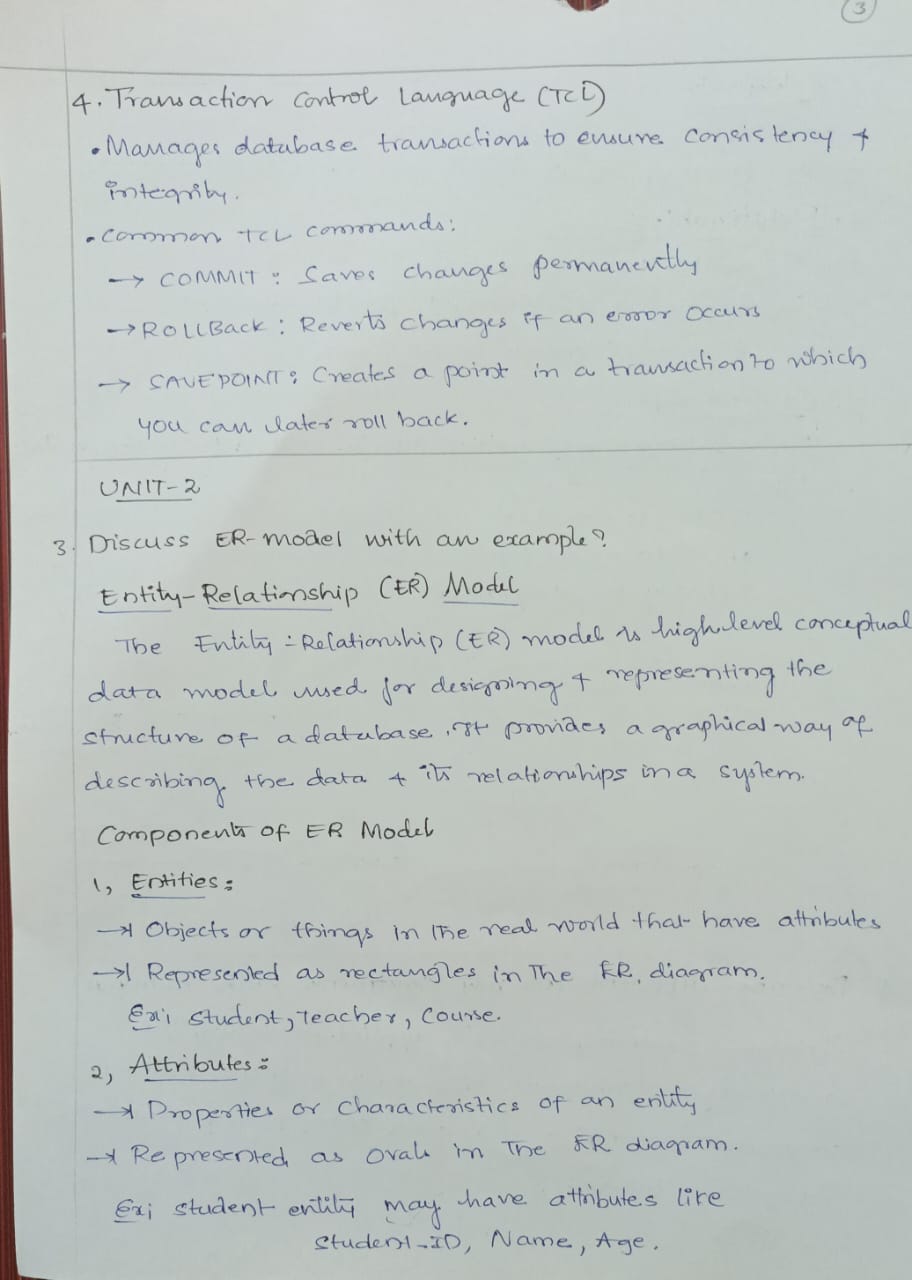 3
4. Transaction Control Language (TCL)
• Manages database transactions to ensure consistency &
integrity.
• Common TCL commands:
→ COMMIT : Saves changes permanently
→ ROLLBack : Reverts changes if an error occurs
→ SAVEPOINT : Creates a point in a transaction to which
you can later roll back.
UNIT-2
3. Discuss ER-model with an example?
Entity-Relationship (ER) Model
The Entity-Relationship (ER) model is high level conceptual
data model used for designing & representing the
structure of a database. It provides a graphical way of
describing the data & its relationships in a system.
Components of ER Model
1, Entities:
→ Objects or things in the real world that have attributes
→ Represented as rectangles in The ER diagram.
Ex: Student, Teacher, Course.
2, Attributes:
→ Properties or characteristics of an entity
→ Represented as ovals in The ER diagram.
Ex: Student entity may have attributes like
Student-ID, Name, Age.